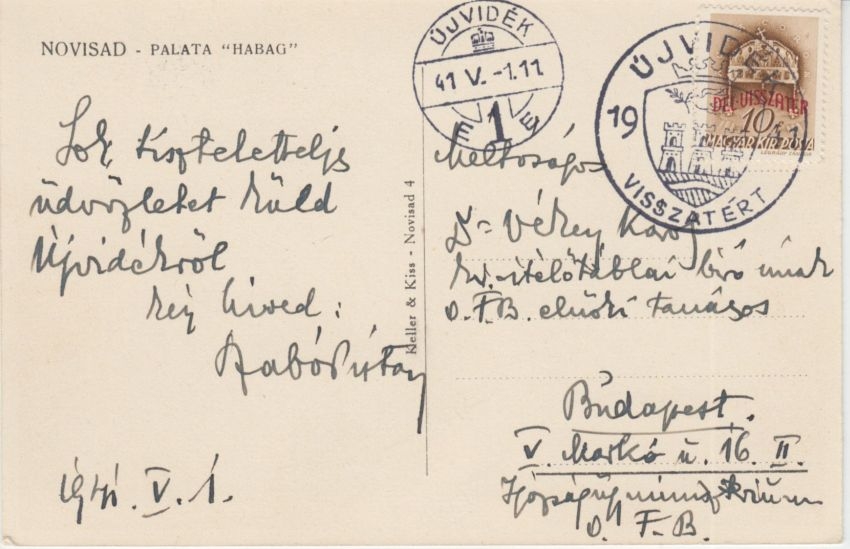 NOVISAD - PALATA "HABAG"
Sok tiszteletteljes
üdvözletet küld
Újvidékről
híved:
Szabó István
1941. V. 1.
Keller & Kiss - Novisad 4
ÚJVIDÉK
41 V. -1. 11
1
E E
ÚJVIDÉK
19 41
VISSZATÉRT
DÉL-VISSZATÉR
10f
MAGYAR KIR. POSTA
Méltóságos
Dr Vékey Károly
kir. ítélőtáblai bíró úrnak
O.F.B. elnöki tanácsos
Budapest.
V. Markó u. 16. II.
Igazságügyminisztérium
O. F. B.